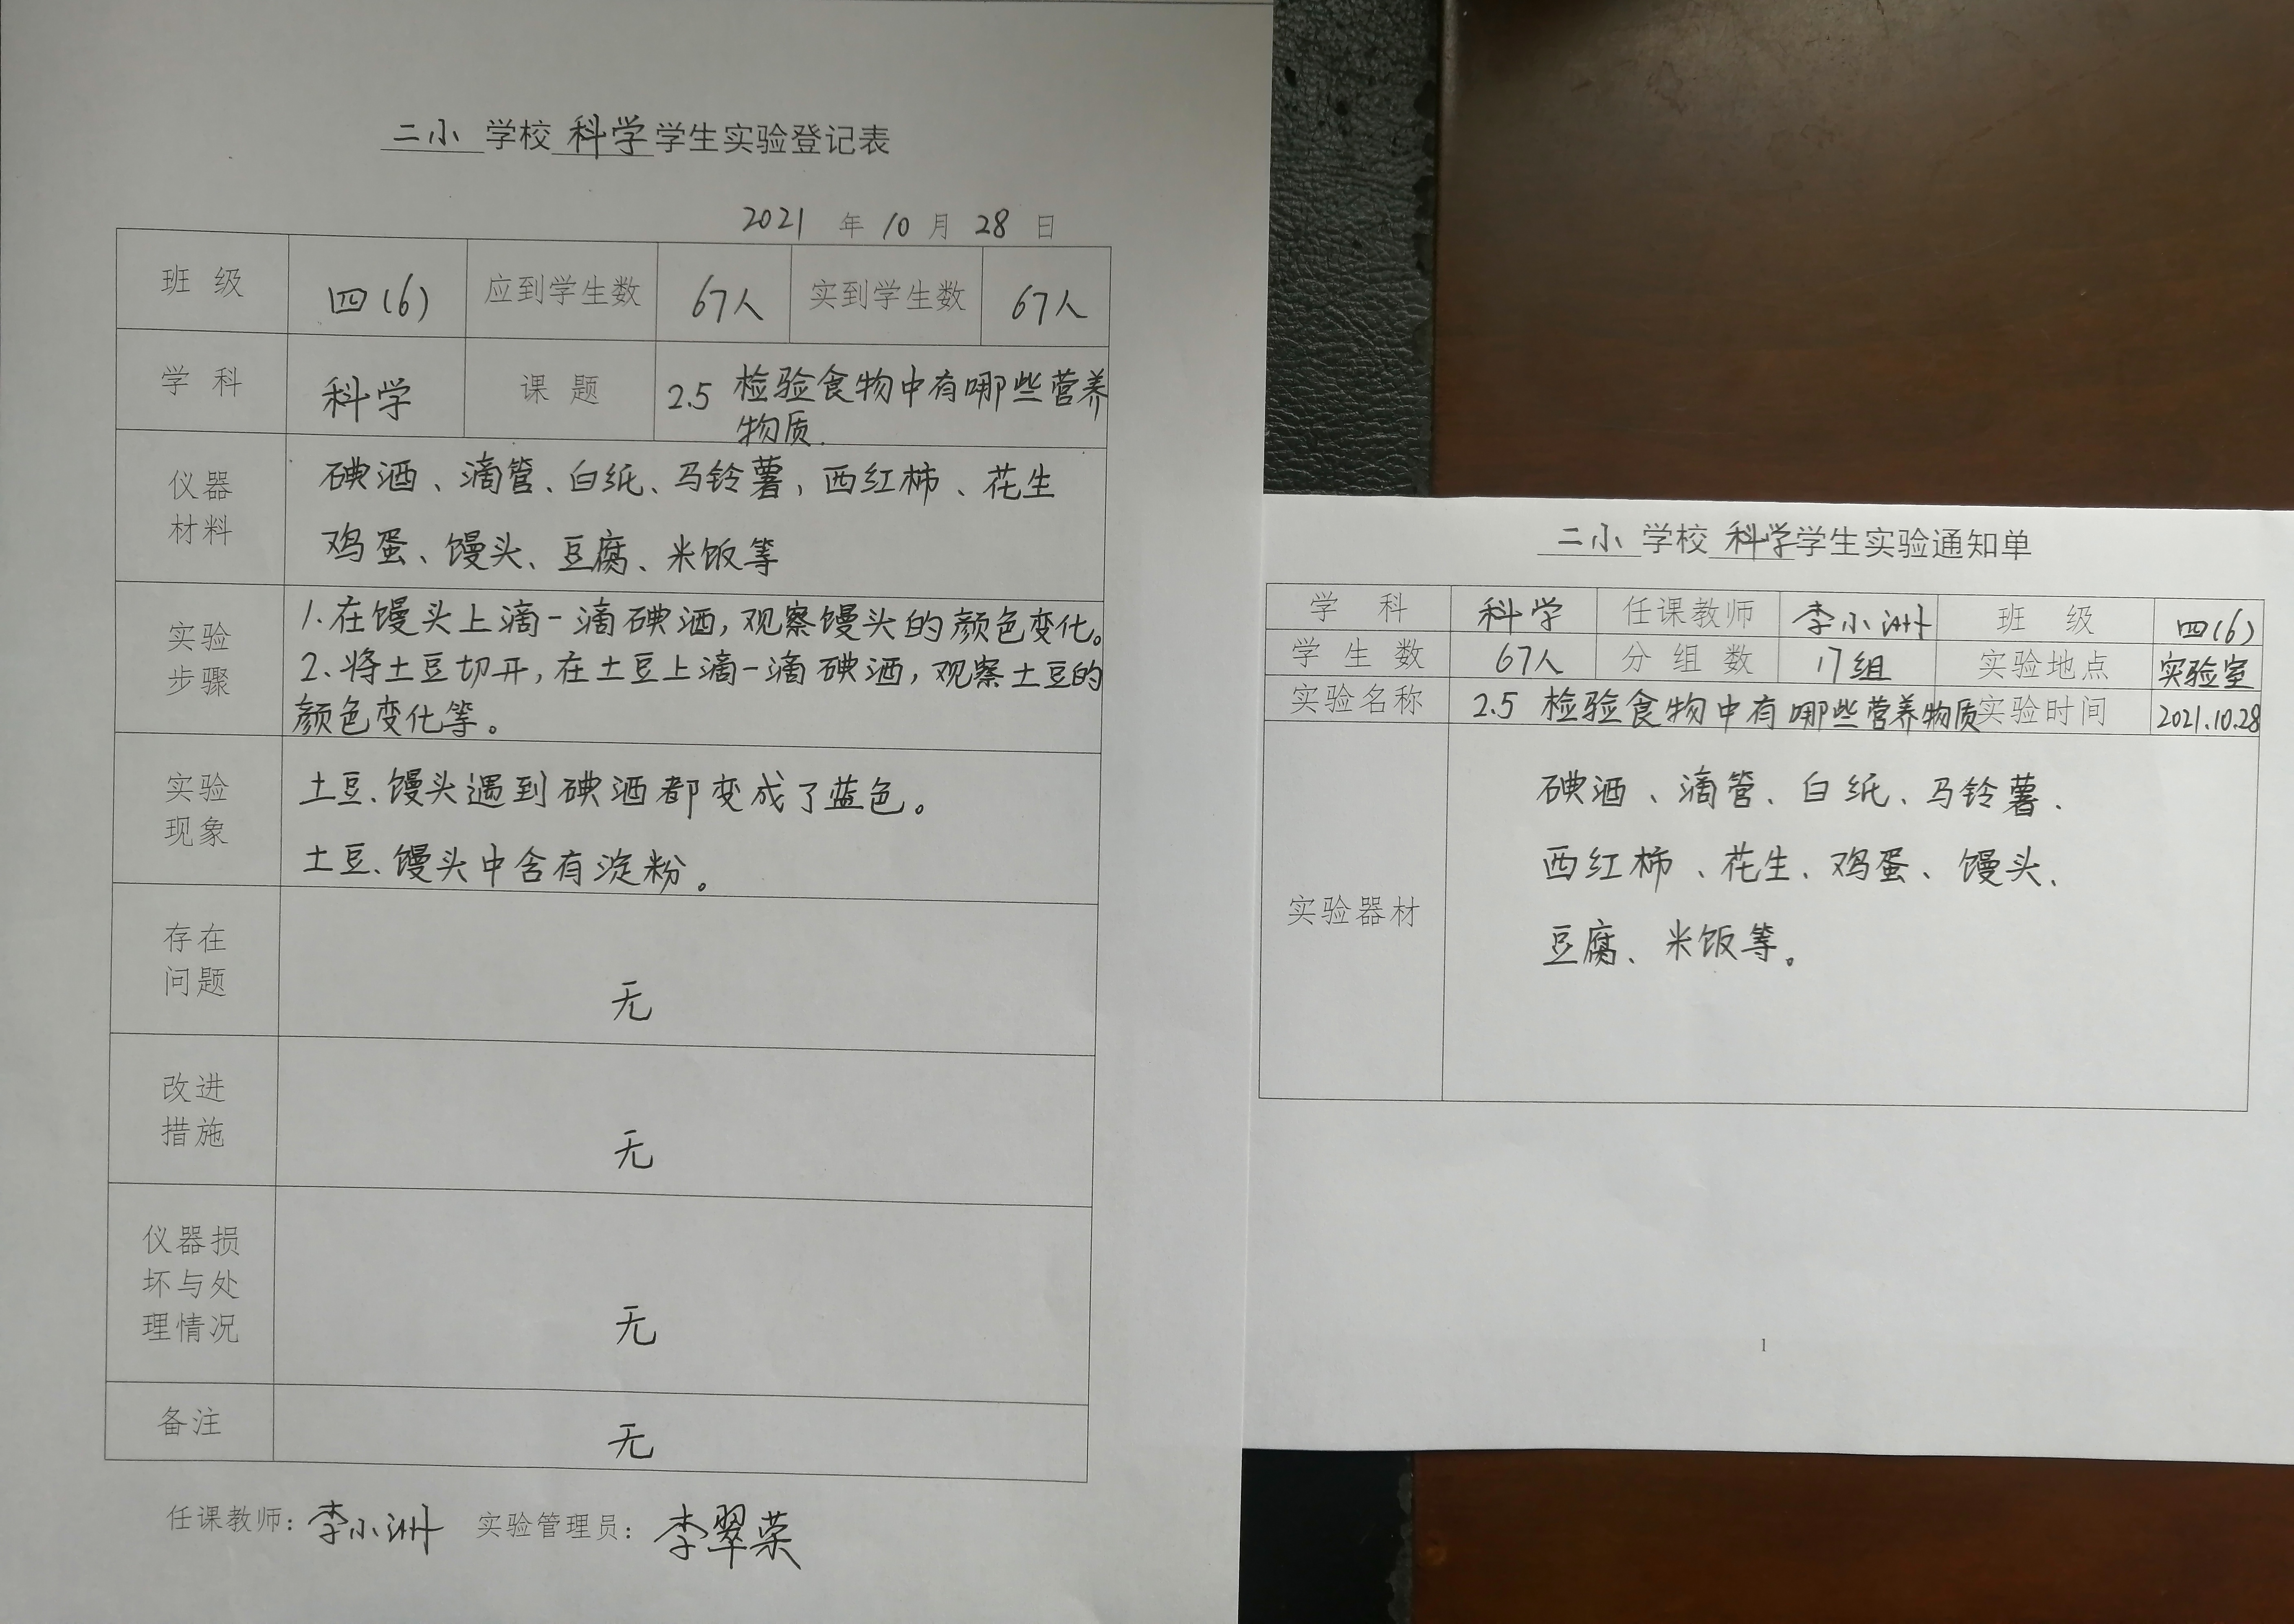 二小 学校 科学 学生实验登记表
2021 年 10 月 28 日
班 级 四(6) 应到学生数 67人 实到学生数 67人
学 科 科学 课 题 2.5 检验食物中有哪些营养
物质.
仪器
材料
碘酒、滴管、白纸、马铃薯、西红柿、花生
鸡蛋、馒头、豆腐、米饭等
实验
步骤
1.在馒头上滴一滴碘酒,观察馒头的颜色变化。
2.将土豆切开,在土豆上滴一滴碘酒,观察土豆的
颜色变化等。
实验
现象
土豆、馒头遇到碘酒都变成了蓝色。
土豆、馒头中含有淀粉。
存在
问题
无
改进
措施
无
仪器损
坏与处
理情况
无
备注 无
任课教师: 李小洲 实验管理员: 李翠荣
二小 学校 科学 学生实验通知单
学 科 科学 任课教师 李小洲 班 级 四(6)
学 生 数 67人 分 组 数 17组 实验地点 实验室
实验名称 2.5 检验食物中有哪些营养物质 实验时间 2021.10.28
实验器材
碘酒、滴管、白纸、马铃薯、
西红柿、花生、鸡蛋、馒头、
豆腐、米饭等。
1